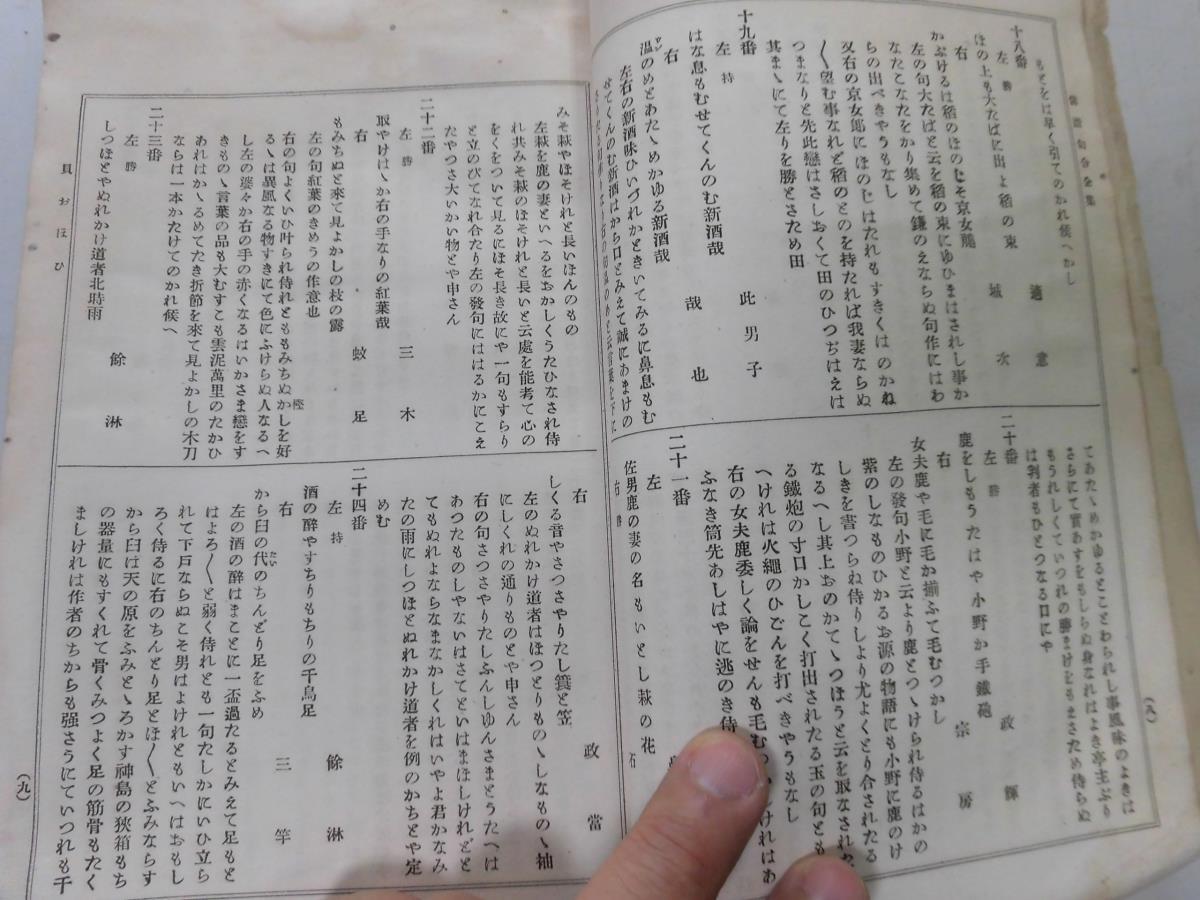 もとをは早く引てのかれ候へかし
十八番
左 勝 適意
ほの上も大たばに出よ稻の束
右 城次
かぶけるは稻のほのじそ京女﨟
左の句大たばと云を稻の束にゆひまはされし事か
なたこなたをかり集めて鎌のえならぬ句作にはわ
らの出べきやうもなし
又右の京女郞にほのじはたれもすきくはのかね
〳〵望む事なれど稻のとのを持たれば我妻ならぬ
つまなりと先此戀はさしおくて田のひつぢはえは
其まゝにて左りを勝とさため田
十九番
左 持 此男子
はな息もむせてくんのむ新酒哉
右 哉也
温のめとあたゝめかゆる新酒哉
左右の新酒味ひいづれかときいてみるに鼻息もむ
せてくんのむ新酒はから口とみえて誠にあまけの
てあたゝめかゆるとことわられし事風味のよきは
さらにて實あすをもしらぬ身なれはよき亭主ぶり
もうれしくていつれの勝まけをもえさため侍らぬ
は判者もひとつなる口にや
二十番
左 勝 政輝
鹿をしもうたはや小野か手鐵砲
右 宗房
女夫鹿や毛に毛か揃ふて毛むつかし
左の發句小野と云より鹿とつゝけられ侍るはかの
紫のしなものひかるお源の物語にも小野に鹿のけ
しきを書つらね侍りしより尤よくとり合されたる
なるへし其上おのかてゝつほうと云を取なされ
る鐵炮の寸口かしこく打出されたる玉の句とも
へけれは火繩のひごんを打べきやうもなし
右の女夫鹿委しく論をせんも毛む
けれはあ
ふなき筒先あしはやに逃のき侍
二十一番
左
佐男鹿の妻の名もいとし萩の花
右 勝 石
(八)
みそ萩やほそけれと長いほんのもの
左萩を鹿の妻といへるをおかしくうたひなされ侍
れ共みそ萩のほそけれと長いと云處を能考て心の
をくをついて見るにほそ長き故にや一句もすらり
と立のびてなれ合たり左の發句にははるかにこえ
たやつさ大いかい物とや申さん
二十二番
左 勝 三木
取やけはゝか右の手なりの紅葉哉
右 蚊足
もみちぬと來て見よかしの枝の露
左の句紅葉のきめうの作意也
右の句よくいひ叶られ侍れとももみちぬかしを好
樫
るゝは異風なる物すきにて色にふけらぬ人なるへ
し左の婆々か右の手の赤くなるはいかさま戀をす
きものゝ言葉の品も大むすこも雲泥萬里のたかひ
あれはかゝるめてたき折節を來て見よかしの木刀
ならは一本かたけてのかれ候へ
二十三番
左 勝 餘淋
しつほとやぬれかけ道者北時雨
右 政當
しくる音やさつさやりたし簑と笠
左のぬれかけ道者はほつとりものゝしなものゝ袖
にしくれの通りものとや申さん
右の句さつさやりたしふんしゆんさまとうたへは
あつたものしやないはさてといはまほしけれどと
てもぬれよならなまなかしくれはいやよ君かなみ
たの雨にしつほとぬれかけ道者を例のかちとや定
めむ
二十四番
左 持 餘淋
酒の醉やすちりもちりの千鳥足
右 三竿
から臼の代のちんどり足をふめ
たい
左の酒の醉はまことに一盃過たるとみえて足もと
はよろ〳〵と弱く侍れとも一句たしかにいひ立ら
れて下戸ならぬこそ男はよけれともいへはおもし
ろく侍るに右のちんとり足とほ〳〵とふみならす
から臼は天の原をふみとゝろかす神鳥の狹箱もち
の器量にもすくれて骨くみつよく足の筋骨もたく
ましけれは作者のちからも强さうにていつれも千
貝おほひ
(九)